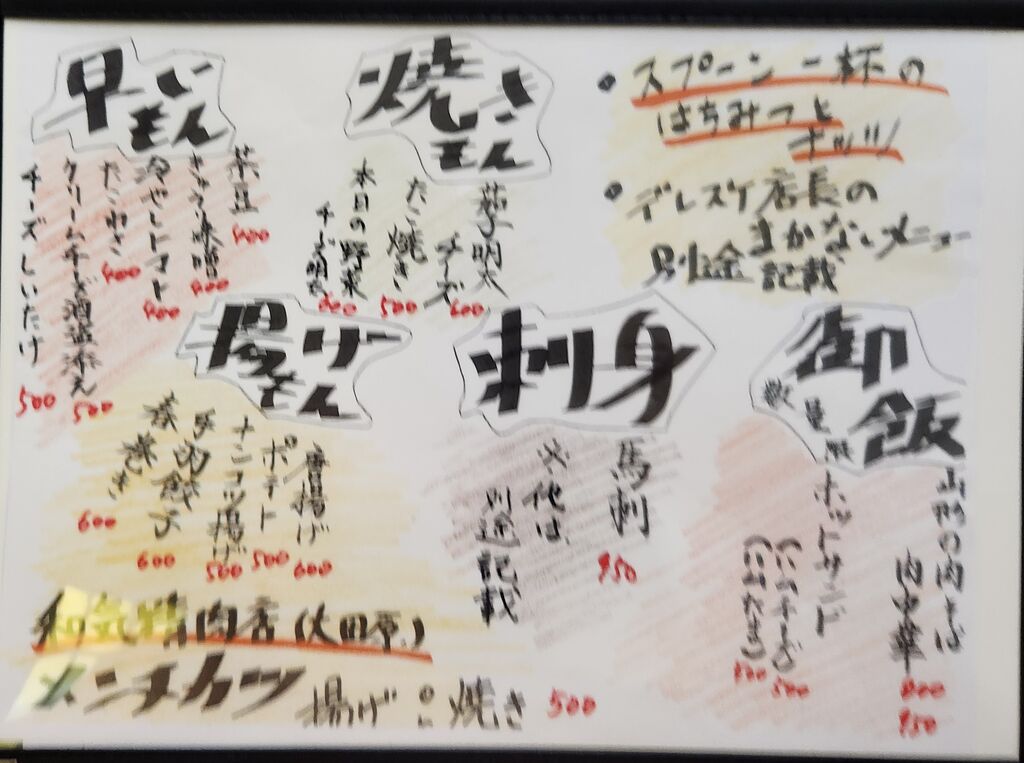 早いもん
茶豆 400
きゅうり味噌 400
冷やしトマト 400
たこわさ 400
クリームチーズ酒盗添え 500
チーズしいたけ 500
焼きもん
明太チーズ 600
たこ焼き 500
本日の野菜
チーズ明太 600
・スプーン一杯の
はちみつと
ナッツ
・デレスケ店長の
まかないメニュー
別途記載
屋りーもん
唐揚げ 600
ポテト 500
ナンコツ揚げ 500
手羽餃子 600
春巻き 600
刺身
馬刺 950
他は
別途記載
御飯
数量限
山形の肉そば 800
肉中華 950
ホットサンド
(ハムチーズ) 500
(ハムたまご) 500
和気精肉店(大田原)
メンチカツ 揚げ or 焼き 500